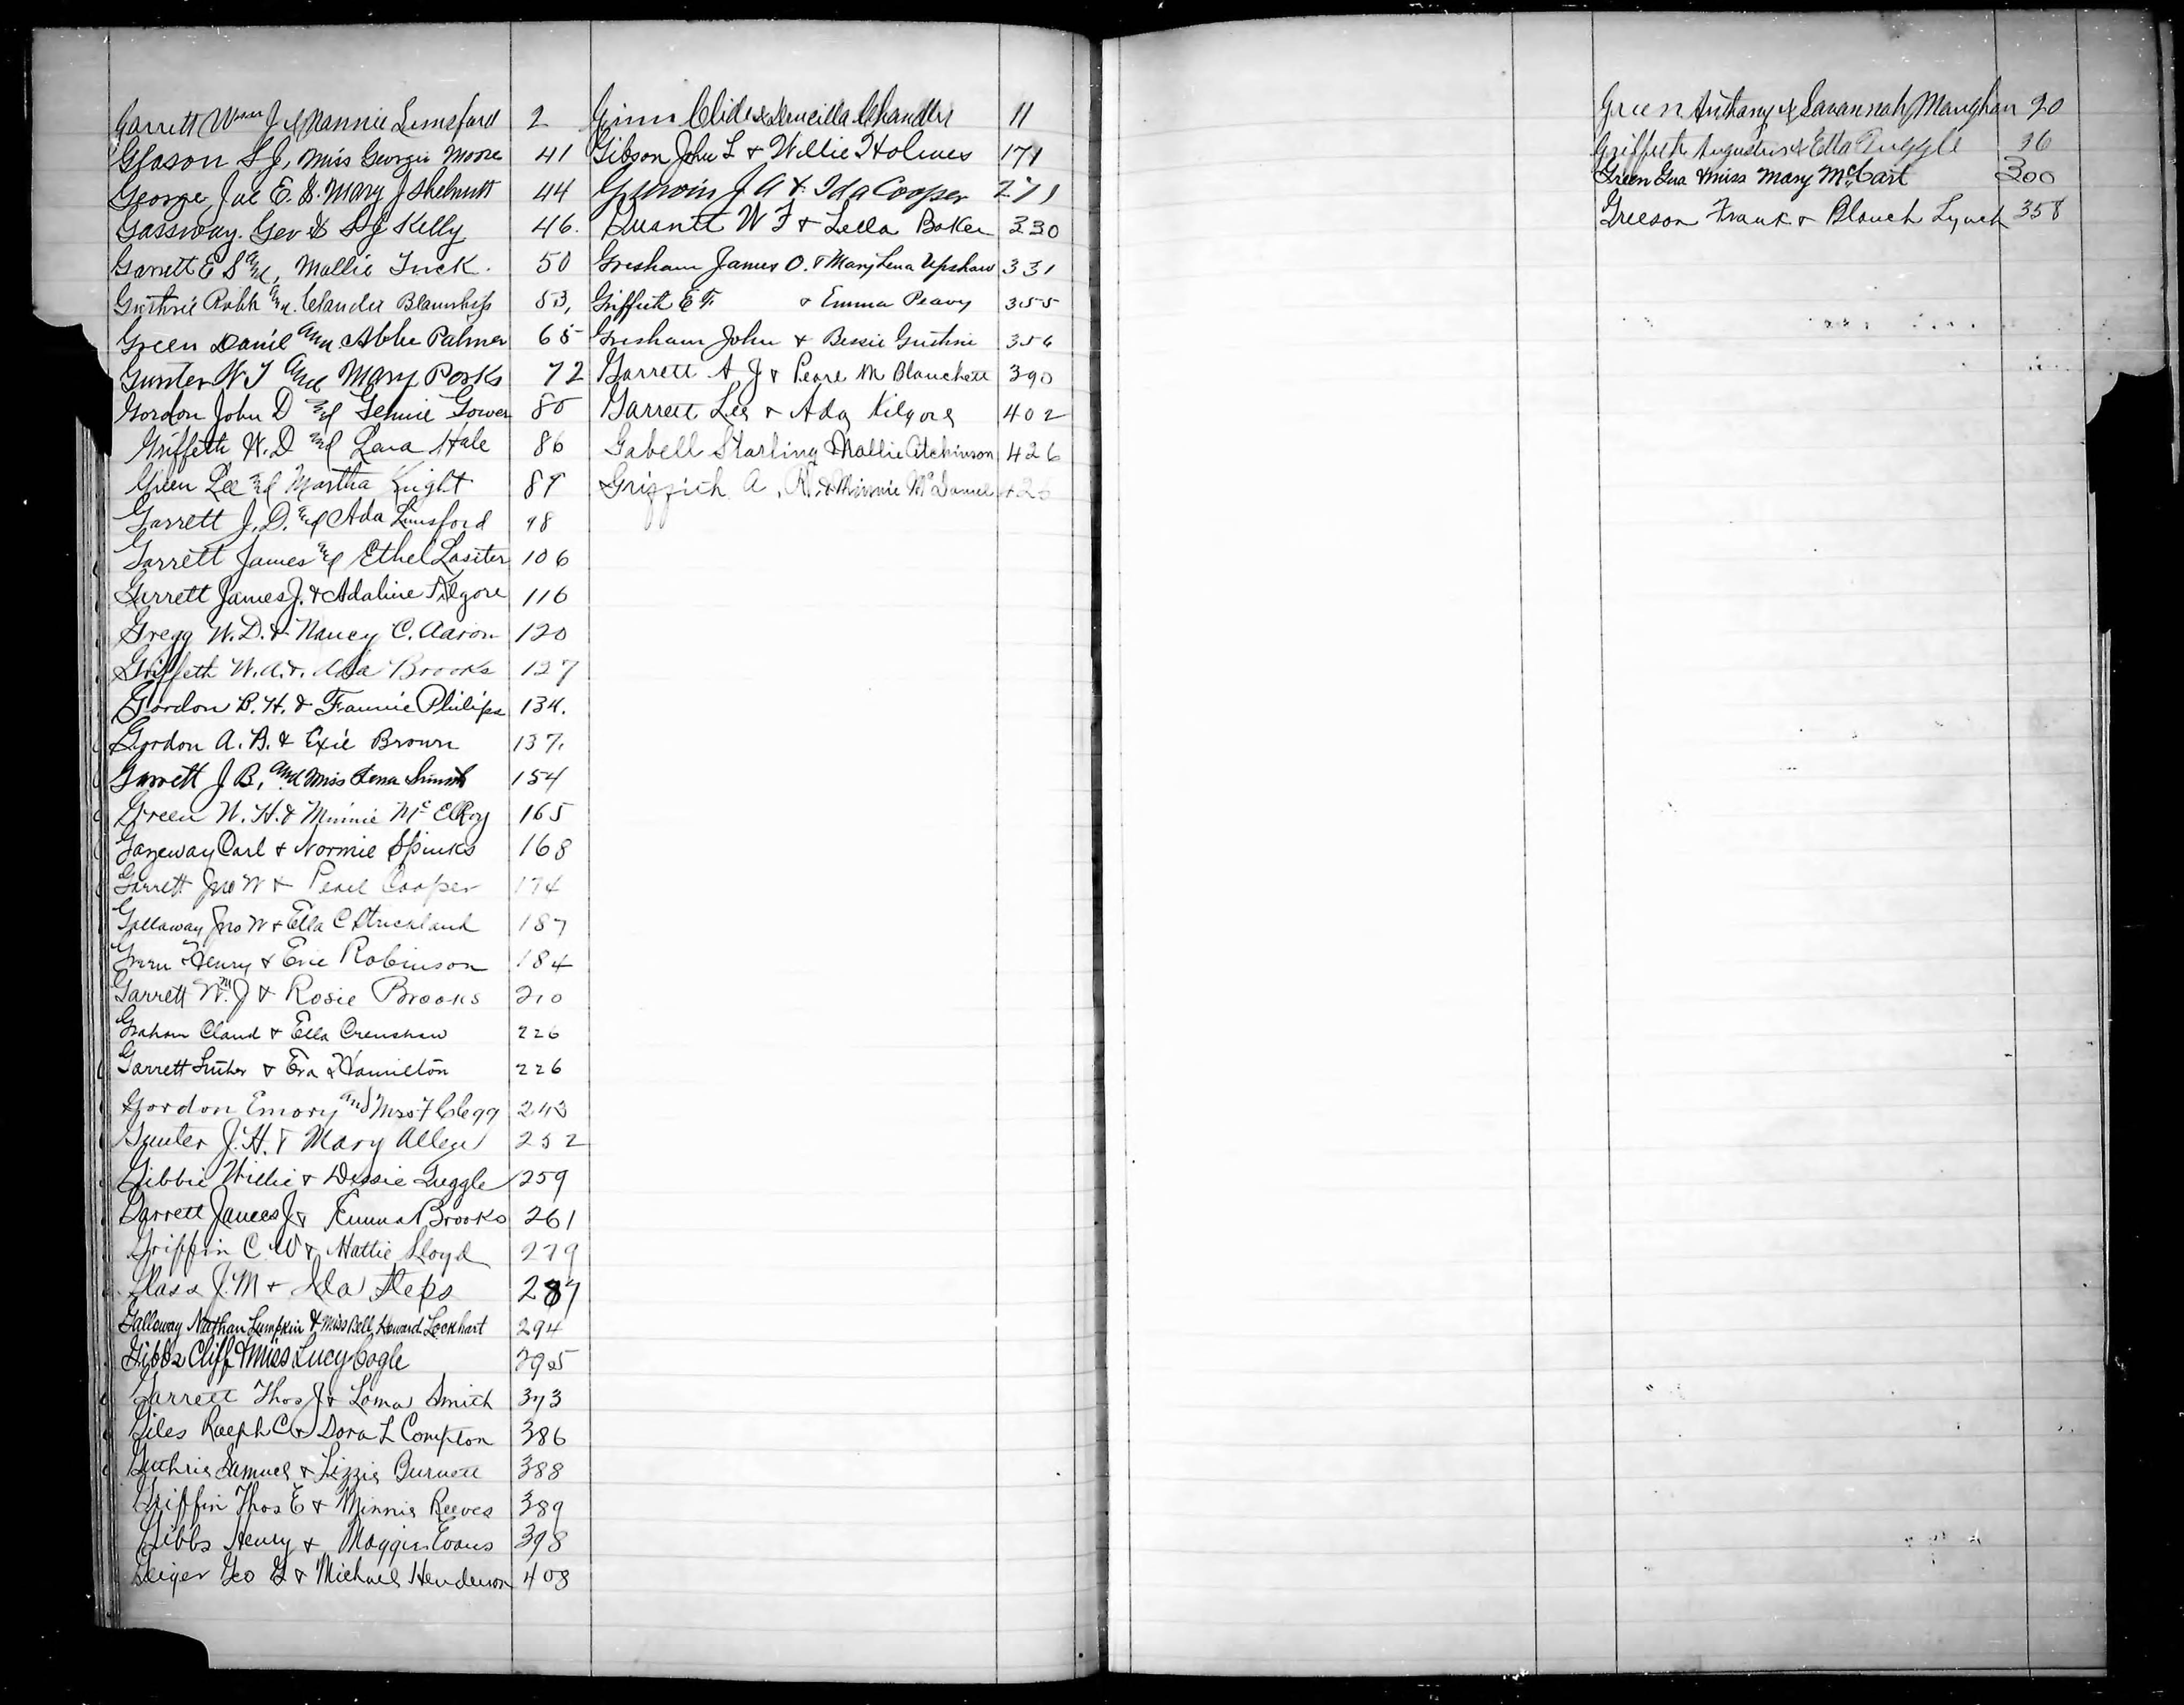 Garrett J & Nannie Lunsford 2
Gleason S J, Miss Georgie Moore 41
George Jae E. & Mary J Shelnutt 44
Gassway Geo & S J Kelly 46.
Garrett E S and, Mallie Tuck. 50
Guthrie Robt and 53,
Green Daniel and Abbie Palmer 65
Gunter W T and Mary Parks 72
Gordon John D and Gower 80
Griffeth W. D and Lara Hale 86
Green Lee and Martha Knight 87
Garrett J. D. and Ada Lunsford 98
Garrett James and Ethel Lasiter 106
Garrett James J. & Adaline Kilgore 116
Gregg W. D. & Nancy C. Aaron 120
Griffeth W. A. & Ada Brooks 127
Gordon B. H. & Fannie Philips 134.
Gordon A. B. & Exie Brown 137.
Garrett J B, and Miss Lena 154
Green W. H. & Minnie McElRoy 165
Gazeway Carl & Normie Spinks 168
Garrett Jno W & Pearl Cooper 174
Gallaway Jno W & Ella C Strickland 187
Green Henry & Evie Robinson 184
Garrett Wm. J & Rosie Brooks 210
Graham Claud & Ella Crenshaw 226
Garrett Luther & Eva Hamilton 226
Gordon Emory and Mrs F Clegg 243
Gunter J. H. & Mary Allen 252
Gibbie Willie & Dessie Tuggle 259
Garrett James J & Emma Brooks 261
Griffin C W & Hattie Lloyd 279
Glass J. M & Ida Steps 287
Galloway Nathan Lumpkin & Miss Bell Howard Lockhart 294
Gibbs Cliff & Miss Lucy Cogle 295
Garrett Thos J & Loma Smith 373
Giles Ralph C & Dora L Compton 386
Guthrie Samuel & Lizzie Burnett 388
Griffin Thos E & Minnie Reeves 389
Gibbs Henry & Maggie Evans 398
Geiger Geo G & Michael Henderson 408
Ginn Clide & Chandler 11
Gibson John L & Willie Holmes 171
J A & Ida Cooper 271
W F & Lella Baker 330
Gresham James O. & Mary Lena Upshaw 331
Griffeth E F. & Emma Peavy 355
Gresham John & Bessie Guthrie 356
Garrett A J & Pearl M Blanchett 390
Garrett Lee & Ada Kilgore 402
Gabell Starling & Mallie Atchinson 426
Griffith A. R. & Minnie McDaniel 426
Green Anthony & Savannah Maughan 20
Griffeth Augustus & Etta Tuggle 36
Green Gus & Miss Mary McCart 300
Greeson Frank & Blanch Lynch 358